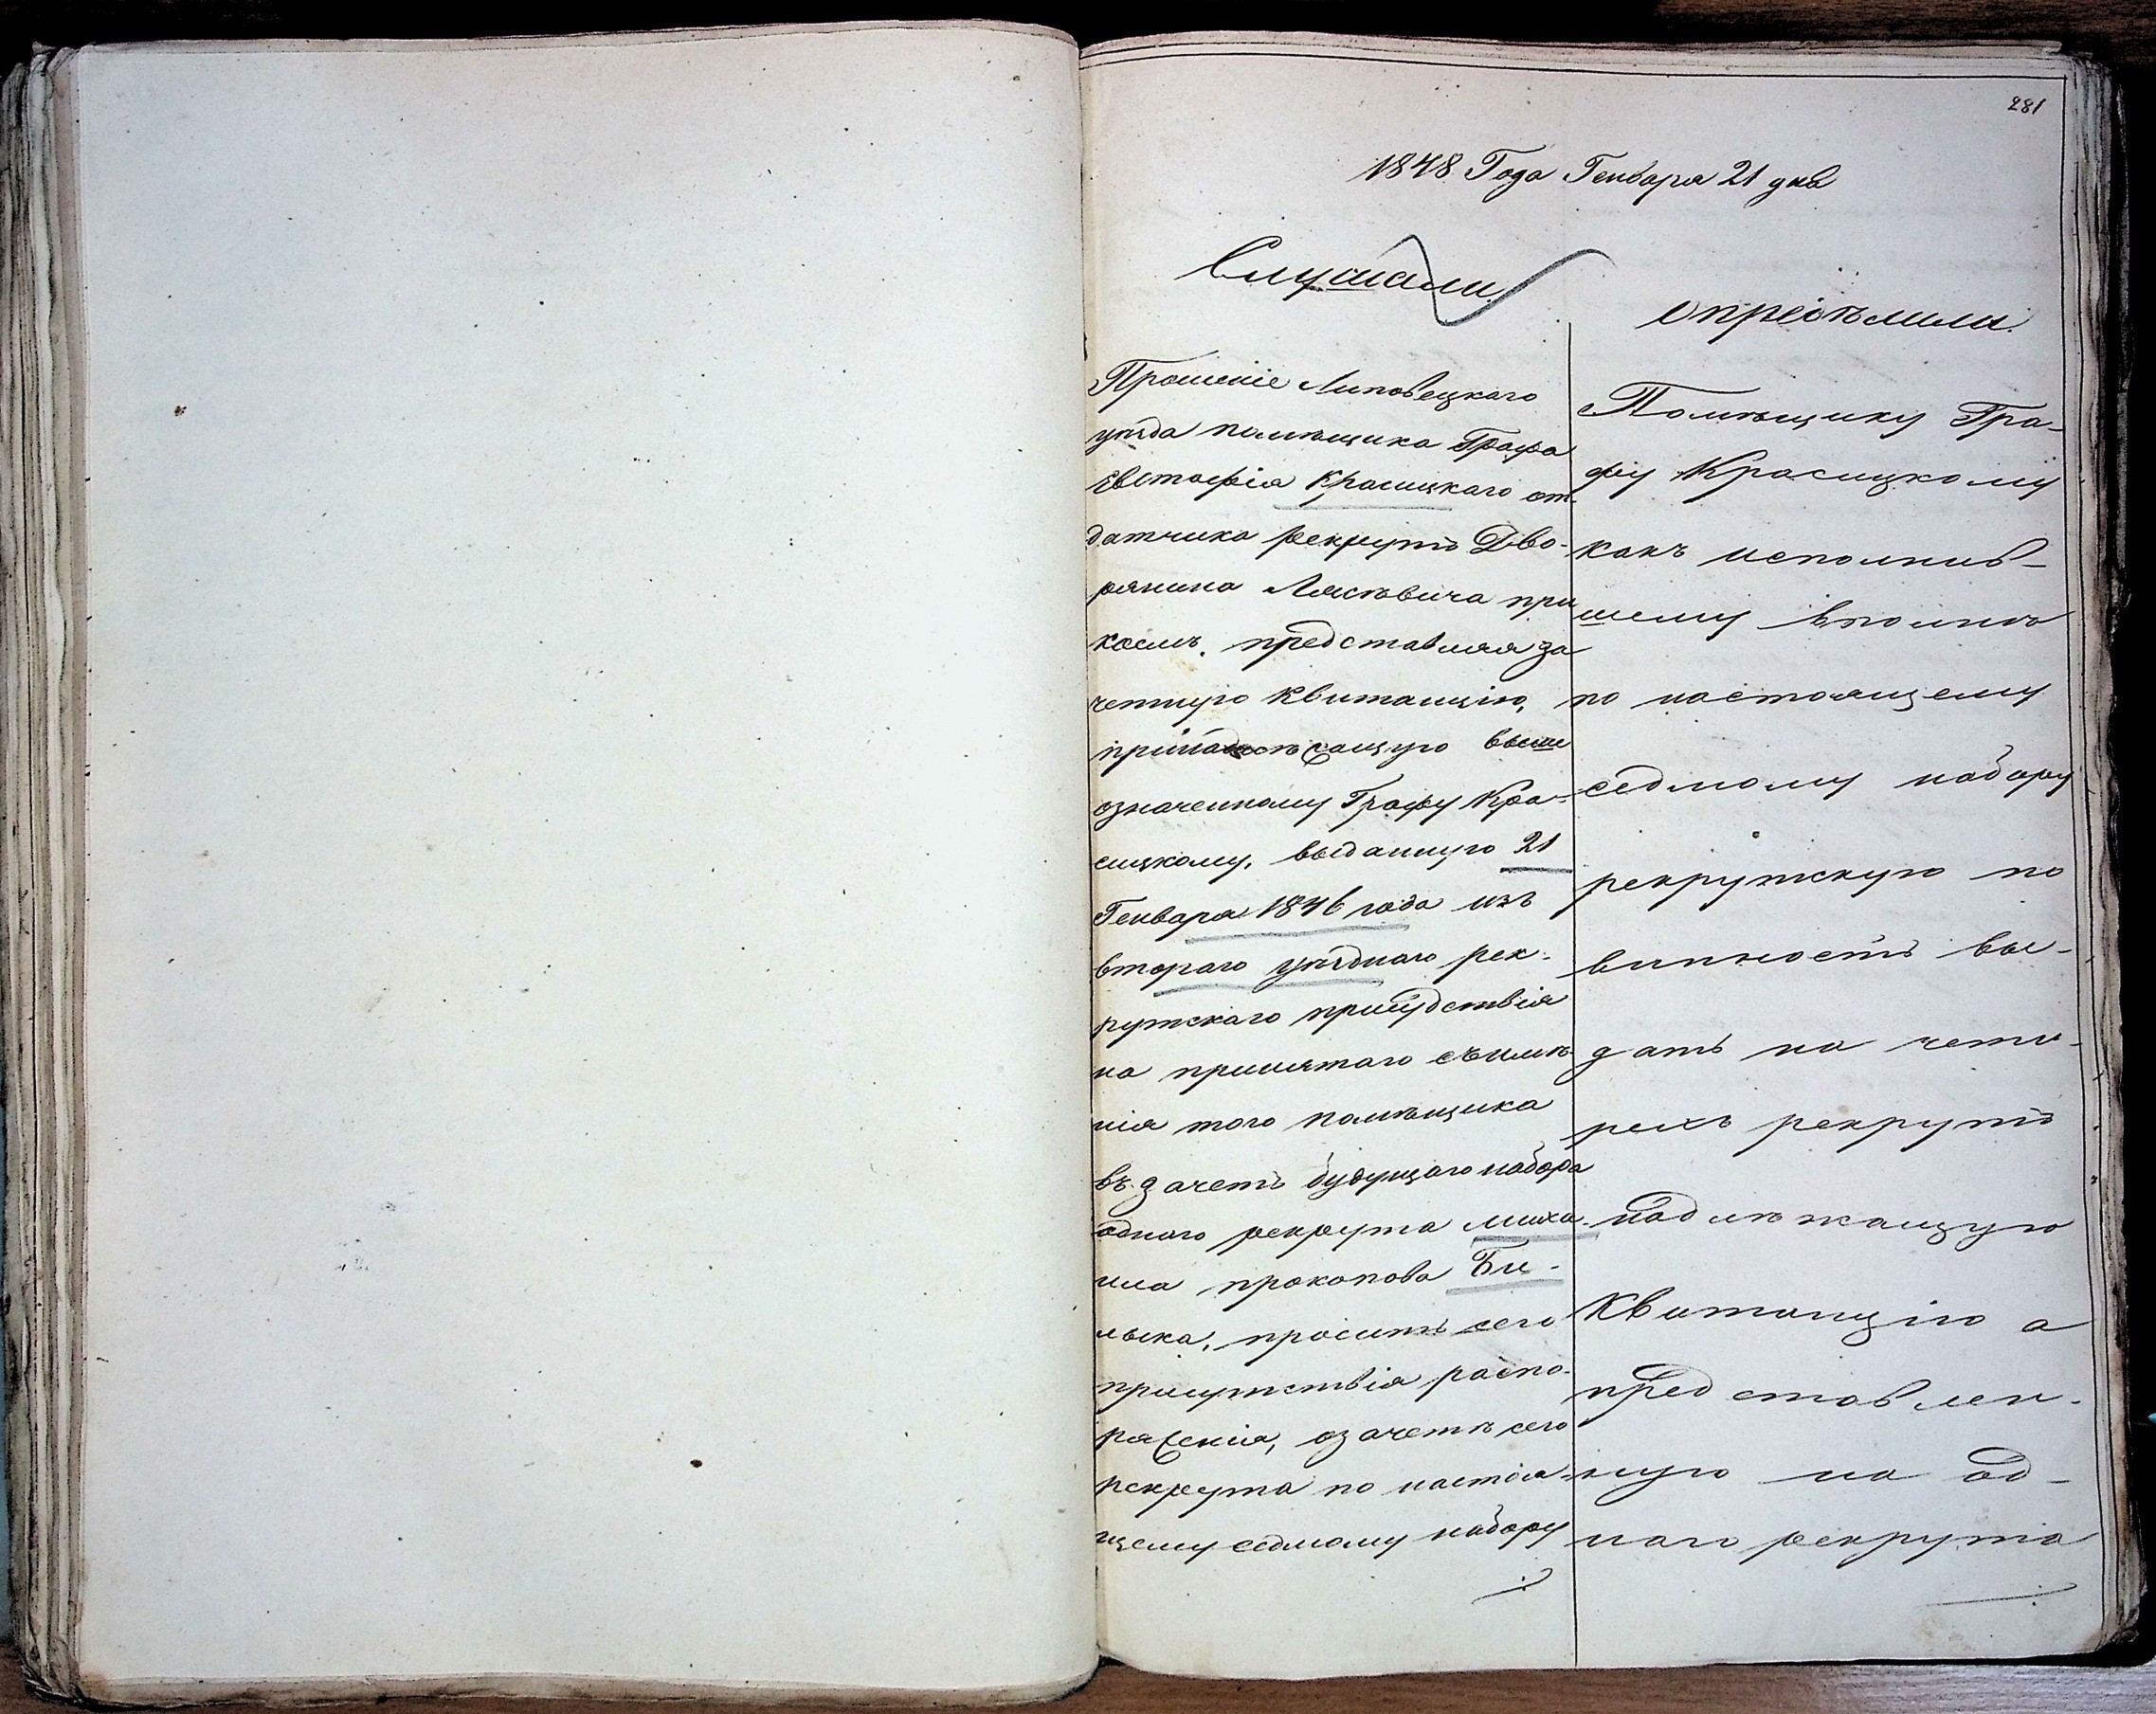 281
1848 Года Генваря 21 дня
Слушали
Прошеніе Липовецкаго
уѣзда помѣщика Графа
Евстафія Красицкаго от-
датчика рекрутъ Дво-
рянина Лясковича при
коемъ, представляя за
четную квитанцію,
принадлежащую выше
означенному Графу Кра-
сицкому, выданную 21
Генваря 1846 года изъ
втораго уѣзднаго рек-
рутскаго присудствія
на принятаго съимѣ-
нія того помѣщика
въ зачетъ будущаго набора
одного рекрута Миха-
ила Прокопова Би-
лыка, проситъ сего
присутствія распо-
ряженія, озачетѣ сего
рекрута по настоя-
щему седмому набору
опредѣлили
Помѣщику Гра-
фу Красицкому
какъ исполнив-
шему вполнѣ
по настоящему
седмому набору
рекрутскую по
винность вы-
дать на четы-
рехъ рекрутъ
надлѣжащую
Квитанцію а
представлен-
ную на од-
наго рекрута